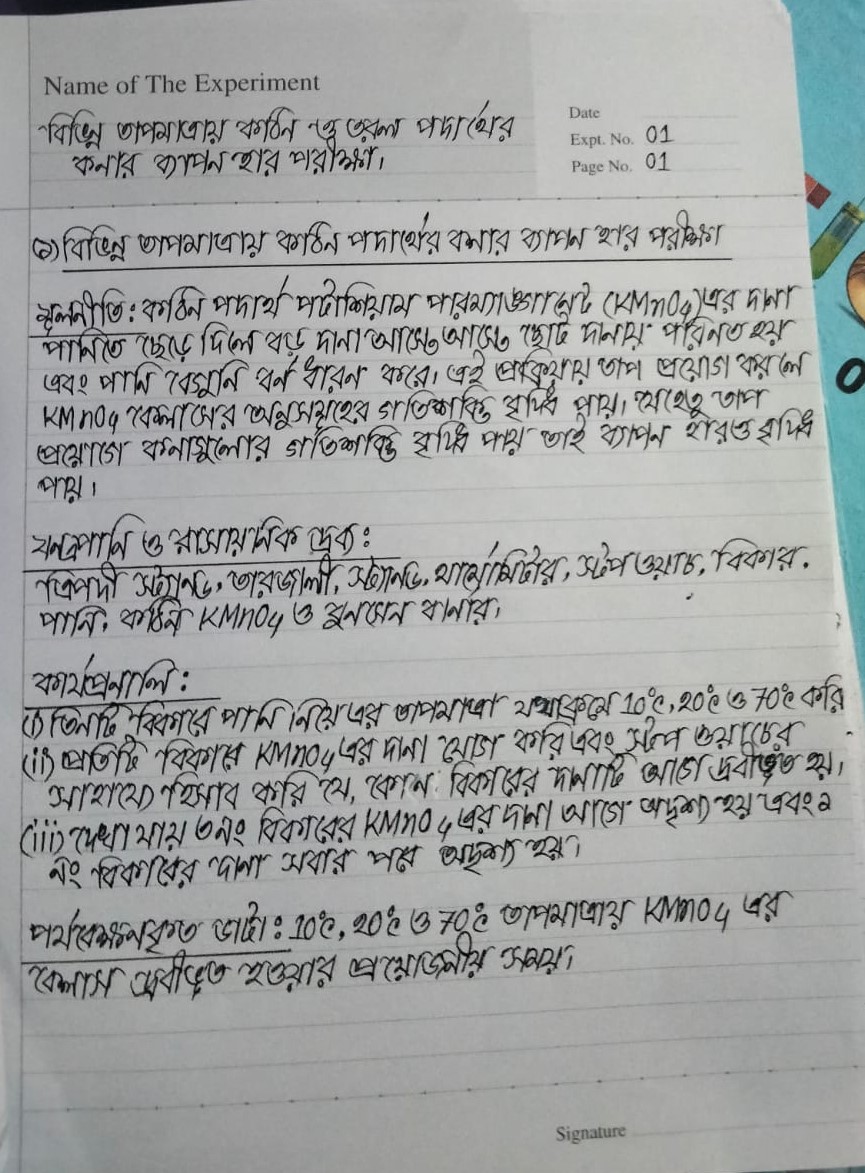 Name of The Experiment
বিভিন্ন তাপমাত্রায় কঠিন ও তরল পদার্থের
কনার ব্যাপন হার পরীক্ষা।
Date
Expt. No. 01
Page No. 01
বিভিন্ন তাপমাত্রায় কঠিন পদার্থের কনার ব্যাপন হার পরীক্ষা
মূলনীতি: কঠিন পদার্থ পটাশিয়াম পারম্যাঙ্গানেট (KMnO4) এর দানা
পানিতে ছেড়ে দিলে বড় দানা আস্তে আস্তে ছোট দানায় পরিনত হয়
এবং পানি বেগুনি বর্ন ধারন করে। এই প্রক্রিয়ায় তাপ প্রয়োগ করলে
KMnO4 কেলাসের অনুসমূহের গতিশক্তি বৃদ্ধি পায়। যেহেতু তাপ
প্রয়োগে কনাগুলোর গতিশক্তি বৃদ্ধি পায় তাই ব্যাপন হারও বৃদ্ধি
পায়।
যন্ত্রপাতি ও রাসায়নিক দ্রব্য:
ত্রিপদী স্ট্যান্ড, তারজালী, স্ট্যান্ড, থার্মোমিটার, স্টপ ওয়াচ, বিকার,
পানি, কঠিন KMnO4 ও বুনসেন বার্নার।
কার্যপ্রনালি:
(i) তিনটি বিকারে পানি নিয়ে এর তাপমাত্রা যথাক্রমে 10°c, 20°c ও 70°c করি
(ii) প্রতিটি বিকারে KMnO4 এর দানা যোগ করি এবং স্টপ ওয়াচের
সাহায্যে হিসাব করি যে, কোন বিকারের দানাটি আগে দ্রবীভূত হয়।
(iii) দেখা যায় ৩নং বিকারের KMnO4 এর দানা আগে অদৃশ্য হয় এবং ১
নং বিকারের দানা সবার পরে অদৃশ্য হয়।
পর্যবেক্ষনকৃত ডাটা: 10°c, 20°c ও 70°c তাপমাত্রায় KMnO4 এর
কেলাস দ্রবীভূত হওয়ার প্রয়োজনীয় সময়।
Signature